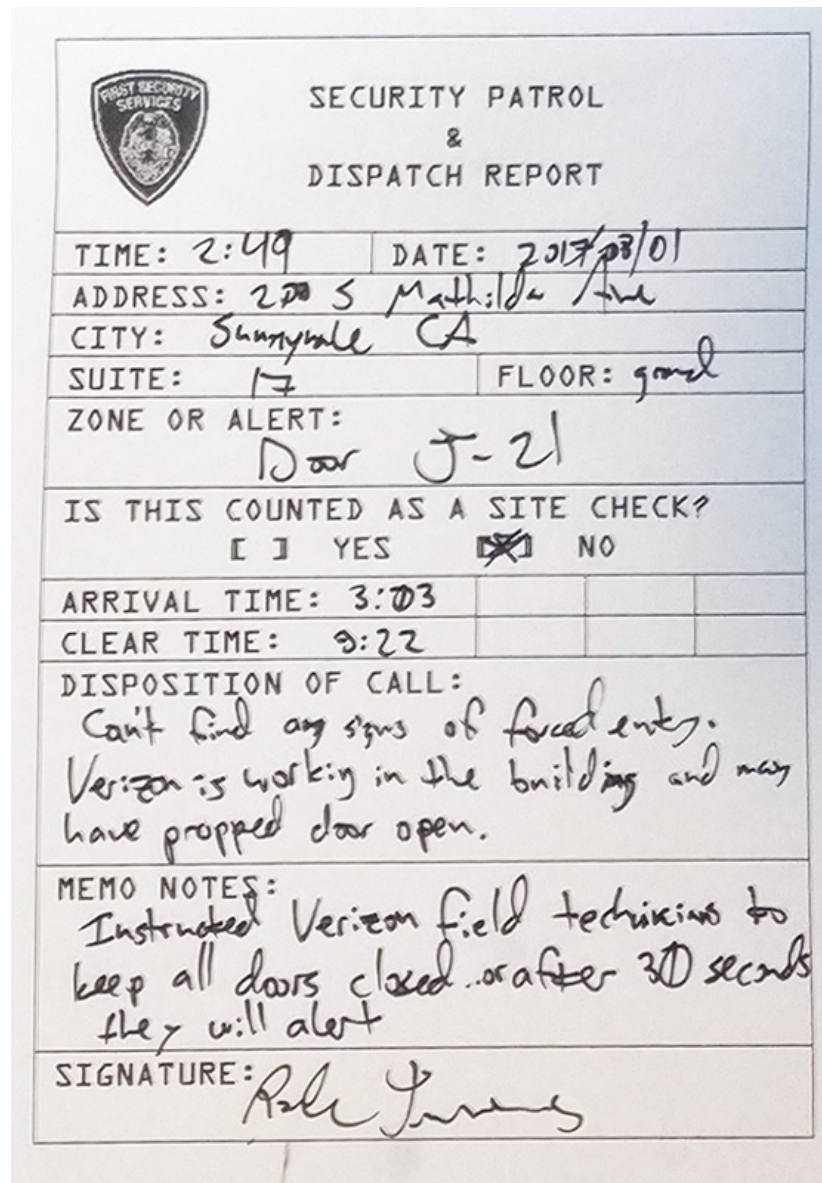 FIRST SECURITY
SERVICES
SECURITY PATROL
&
DISPATCH REPORT
TIME: 2:49 DATE: 2017/03/01
ADDRESS: 200 S Mathilda Ave
CITY: Sunnyvale CA
SUITE: 17 FLOOR: ground
ZONE OR ALERT:
Door J-21
IS THIS COUNTED AS A SITE CHECK?
[ ] YES [X] NO
ARRIVAL TIME: 3:03
CLEAR TIME: 3:22
DISPOSITION OF CALL:
Can't find any signs of forced entry.
Verizon is working in the building and may
have propped door open.
MEMO NOTES:
Instructed Verizon field techicians to
keep all doors closed..or after 30 seconds
they will alert
SIGNATURE: